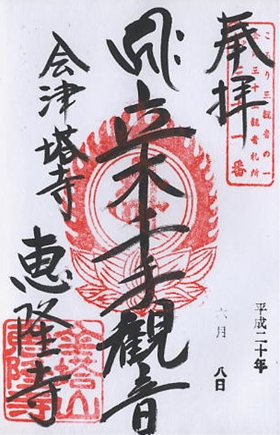 奉拝
ころり三観音の一
会津三十三観音札所
三十一番
平成二十年
六月
八日
立木千手観音
会津塔寺
恵隆寺
金塔山
恵隆寺